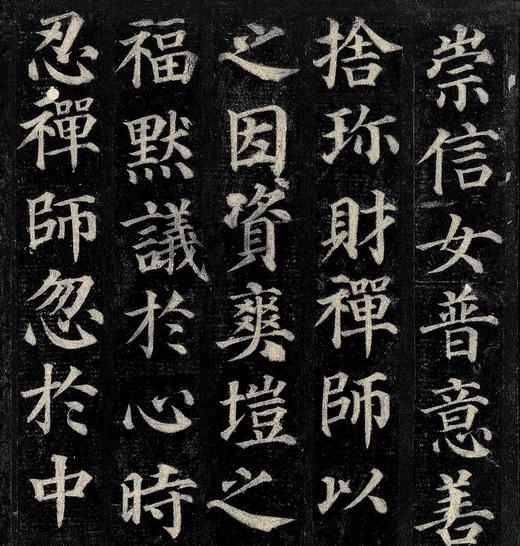 崇信女普意善
捨珎財禪師以
之因資爽塏之
福默議於心時
忍禪師忽於中